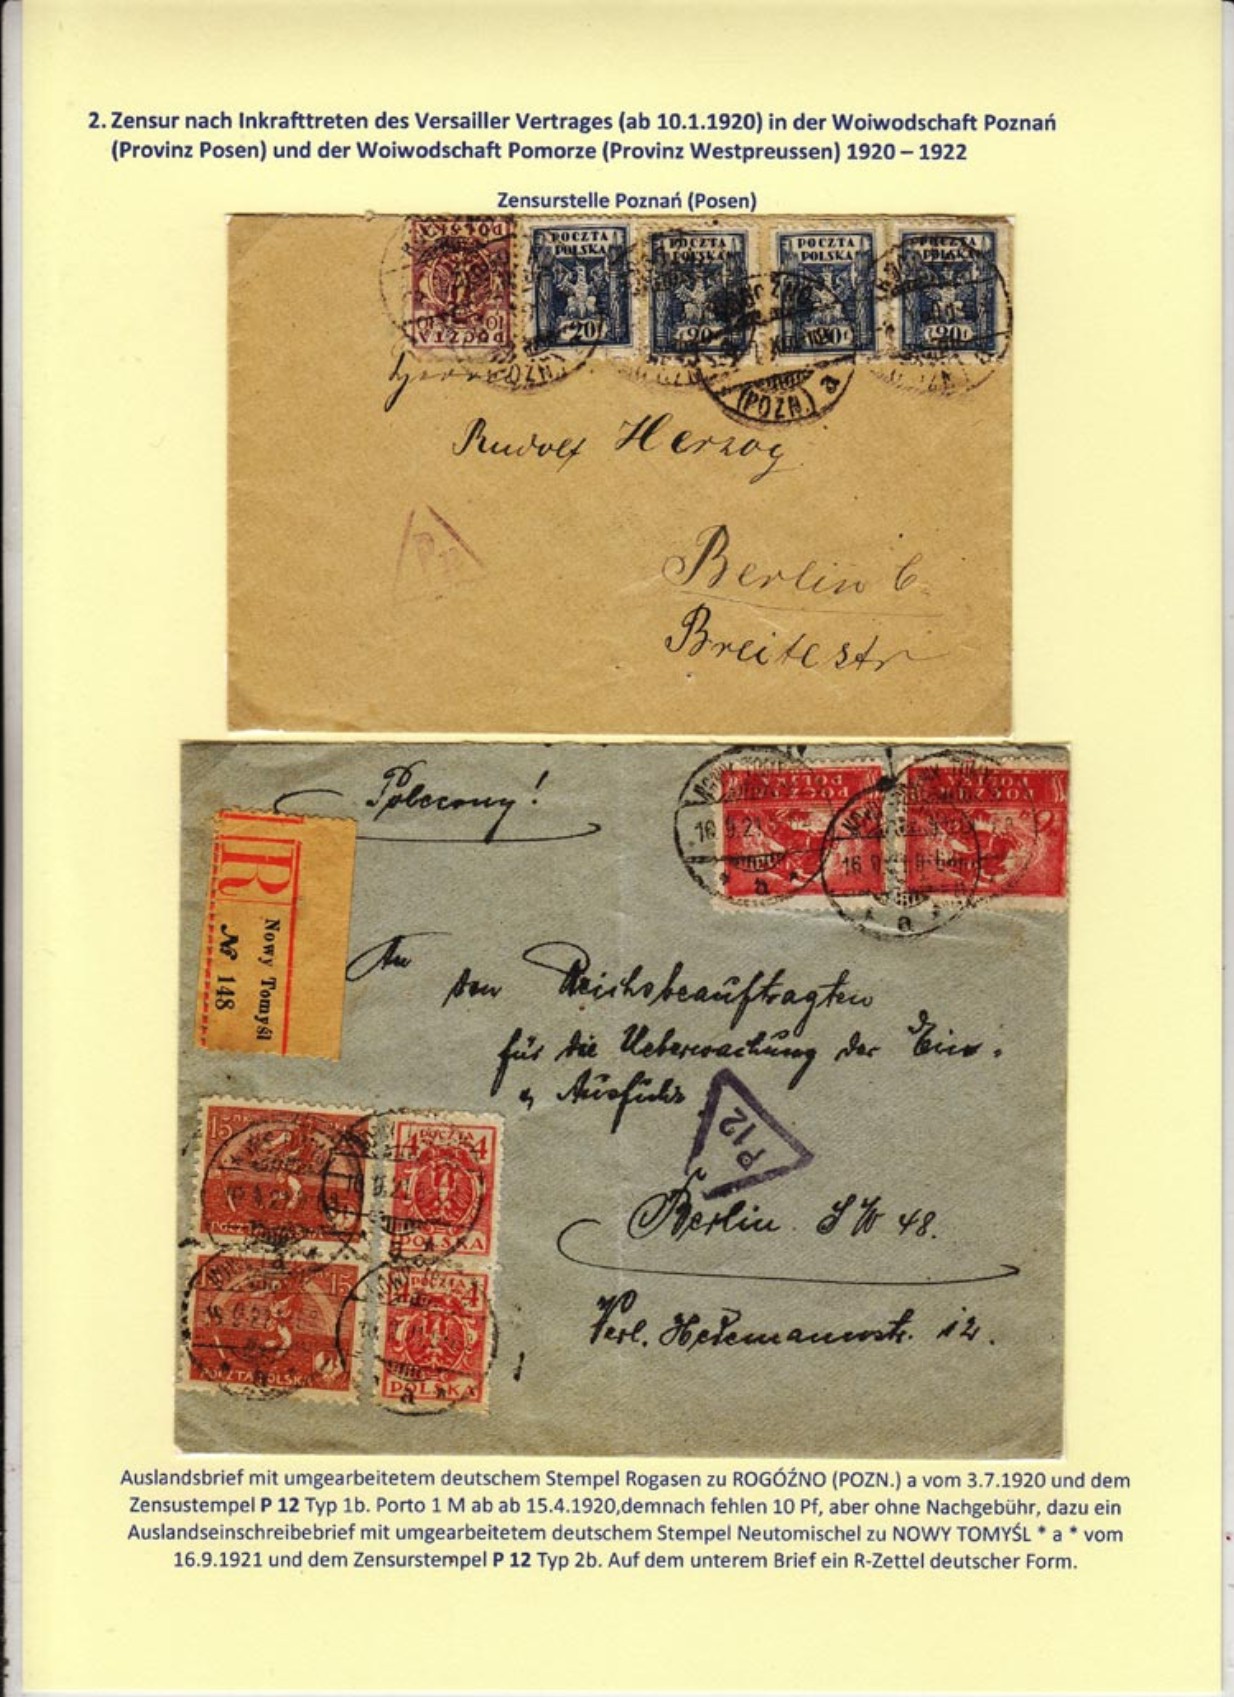 2. Zensur nach Inkrafttreten des Versailler Vertrages (ab 10.1.1920) in der Woiwodschaft Poznań
(Provinz Posen) und der Woiwodschaft Pomorze (Provinz Westpreussen) 1920 – 1922
Zensurstelle Poznań (Posen)
POCZTA
POLSKA
10
POCZTA POLSKA
20f
POCZTA POLSKA
20f
POCZTA POLSKA
20f
POCZTA POLSKA
20f
(POZN.) a
Rudolf Herzog
Berlin C.
Breitestr
Polecony!
POLSKA
POCZTA
POLSKA
16.9.21
a
16.9.21
a
R
Nowy Tomyśl
№ 148
An
den Reichsbeauftragten
für die Ueberwachung der Ein-
u. Ausfuhr
P 12
Berlin SW 48.
Verl. Hedemannstr. 12.
15
4 POCZTA 4
POLSKA
15
POCZTA POLSKA
POCZTA 4
POLSKA
Auslandsbrief mit umgearbeitetem deutschem Stempel Rogasen zu ROGÓŹNO (POZN.) a vom 3.7.1920 und dem
Zensustempel P 12 Typ 1b. Porto 1 M ab ab 15.4.1920,demnach fehlen 10 Pf, aber ohne Nachgebühr, dazu ein
Auslandseinschreibebrief mit umgearbeitetem deutschem Stempel Neutomischel zu NOWY TOMYŚL * a * vom
16.9.1921 und dem Zensurstempel P 12 Typ 2b. Auf dem unterem Brief ein R-Zettel deutscher Form.